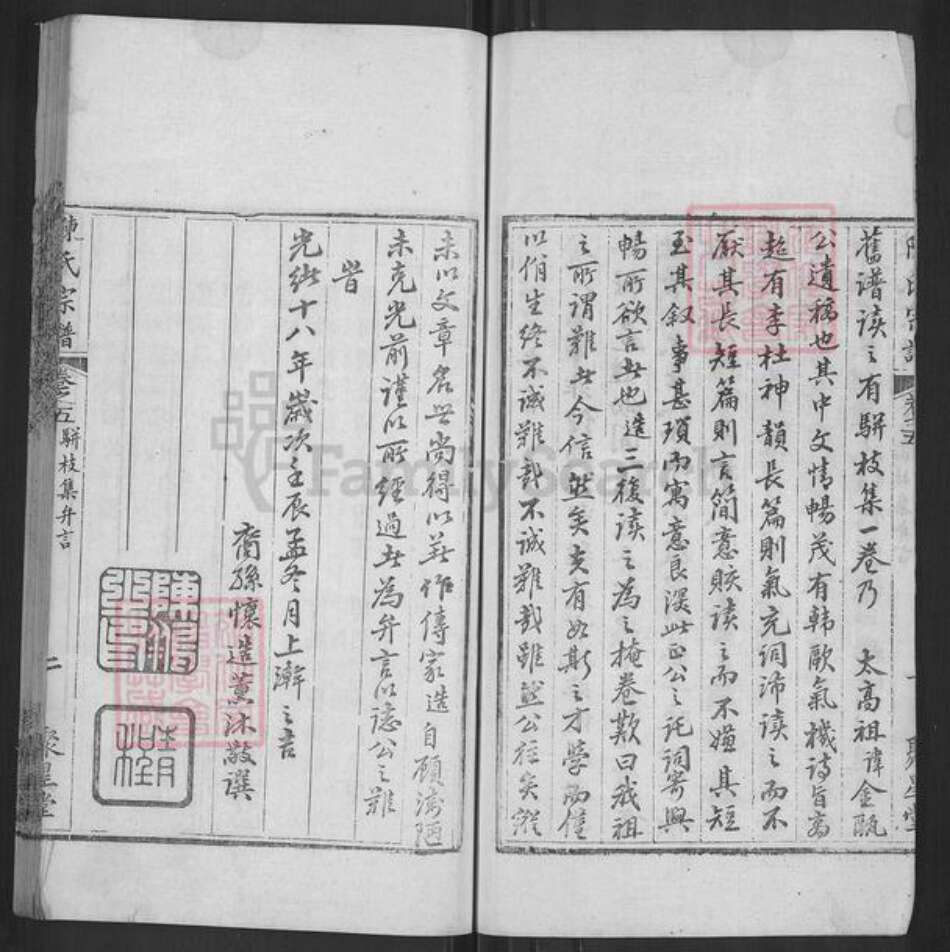 舊譜读之有駢枝集一卷乃 太高祖諱金甌
公遺稿也其中文情暢茂有韩歐氣機詩旨高
超有李杜神韻長篇則氣充词沛读之而不
厭其長短篇則言简意賅读之而不嫌其短
至其叙事甚瑣而寓意良深此正公之託詞寄興
暢所欲言者也造三復读之為之掩卷歎曰我祖
之所謂難者今信然矣夫有如斯之才学而僅
以俏生终不诚難哉不诚難哉雖然公往矣縱
未以文章名世尚得以著作傳家造自顧谫陋
未克光前謹以所經過者為弁言以誌公之難
旹
光緒十八年歲次壬辰孟冬月上澣之吉
裔孫懷造薰沐敬選
陳氏宗譜
卷之五
駢枝集弁言
二
聚星堂
FamilySearch